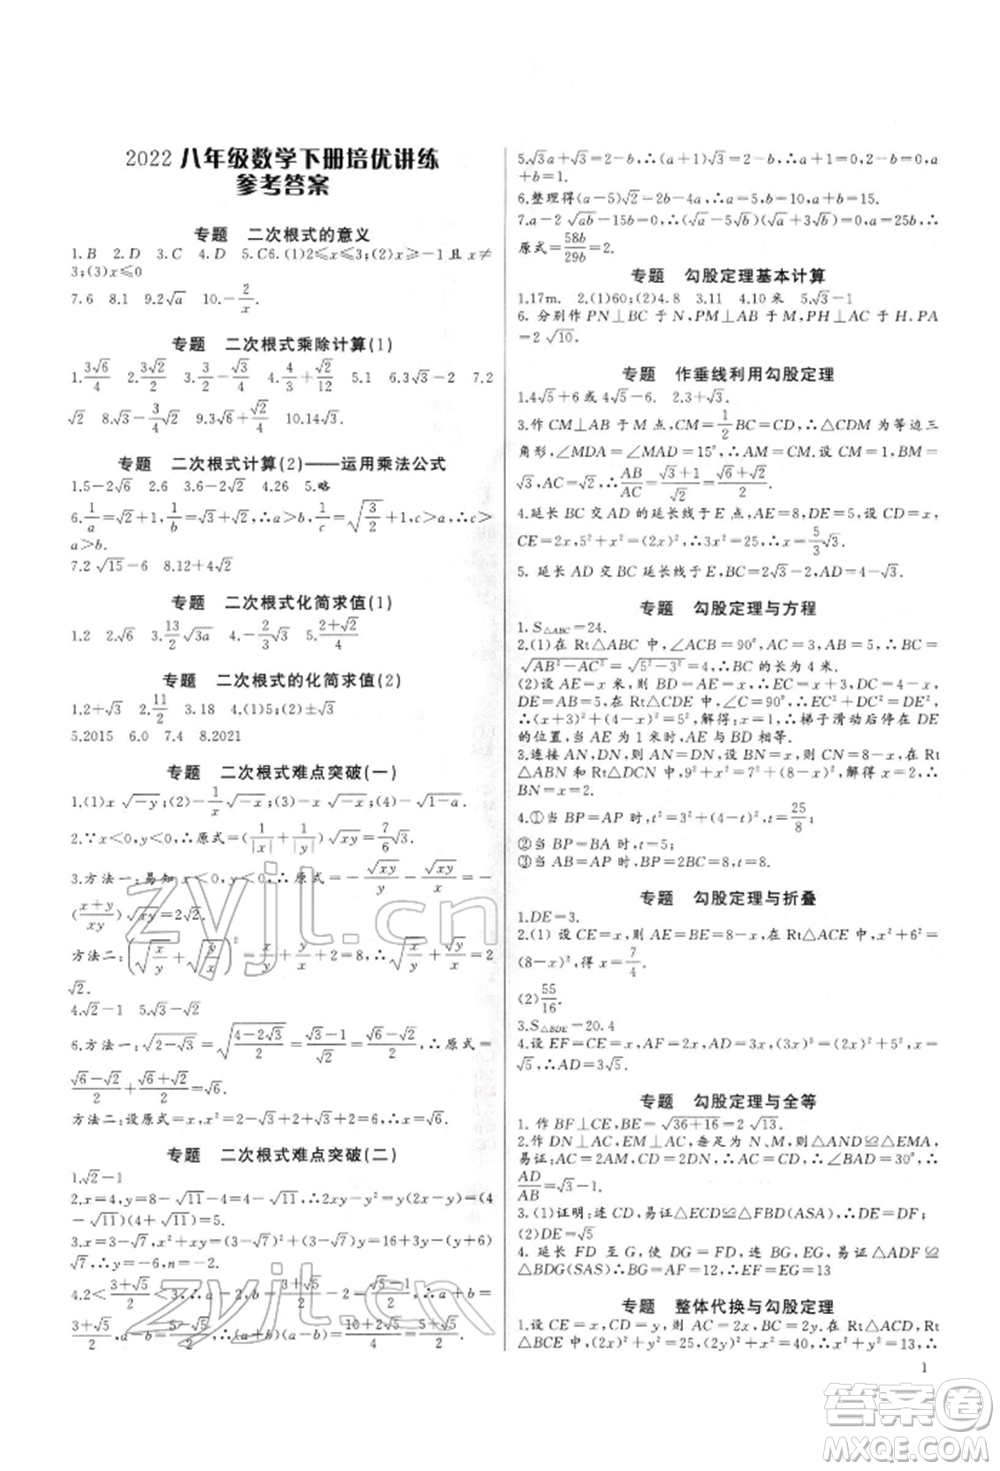 2022 八年级数学下册培优讲练
参考答案
专题 二次根式的意义
1.B 2.D 3.C 4.D 5.C6.(1)2⩽x⩽5;(2)x⩾-1且x≠
3;(3)x⩽0
7.6 8.1 9.2√a 10.-2/x.
专题 二次根式乘除计算(1)
1.3√6/4 2.3√2/2 3.-√3/4 4.√2/12 5.1 6.3√2-2 7.2
√2 8.√3-3/4√2 9.3√6+√2/4 10.14√3.
专题 二次根式计算(2)——运用乘法公式
1.5-2√6 2.6 3.6-√2 4.26 5.略
6.1/a=√2+1,1/b=√3+√2,∴a>b,1/c=√(3/2)+1,c>a,∴c>
a>b.
7.2√15-6 8.12+√6
专题 二次根式化简求值(1)
1.2 2.√6 3.13/2√3a 4.-2/3√3 5.(2+√2)/4
专题 二次根式的化简求值(2)
1.2+√3 2.11/2 3.18 4.(1)5;(2)±√3
5.2015 6.0 7.4 8.2021
专题 二次根式难点突破(一)
1.(1)x√-y;(2)-1/x√-x;(3)-x√-x;(4)-√1-a.
2.∵x<0,y<0,∴原式=(1/|x|+1/|y|)√xy=7/6√3.
3.方法一:易知x<0,y<0,∴原式=-√xy/x-√xy/y=-
((x+y)/xy)√xy=2√2.
方法二:(√(y/x)+√(x/y))²=y/x+x/y+2=8,∴√(y/x)+√(x/y)=2
√2.
4.√2-1 5.√3
6.方法一:√(2-√3)=√((4-2√3)/2)=(√3-1)/√2=(√6-√2)/2,∴原式=
√6/2-√2/2+√2/2=√6/2.
方法二:设原式=x,x²=2-√3+2+√3+2=6,∴x=√6.
专题 二次根式难点突破(二)
1.√2-1
2.x=4,y=8-√11-4=4-√11,∴2xy-y²=y(2x-y)=(4
-√11)(4+√11)=5.
3.x=-1,y=2-√3+1=3-√3,∴原式=1+2√3-3+4-2
√3+y=-6,x=-1,∴xy=6.
4.2<(3+√5)/2<3,∴a=2,b=(3+√5)/2-2=(√5-1)/2,∴a+b=
(3+√5)/2,a-b=(5-√5)/2,∴(a+b)(a-b)=(10+2√5)/4=(5+√5)/2.
5.√3a+√3=2-b,∴√3(a+1)=2-b,∴b=2,a+1=0,∴a
+b=1.
6.整理得(a-5)√2-2b-4=0,∴a=5,b=-2,∴a+b=3.
7.a-2√ab-15b=0,∴(√a-5√b)(√a+3√b)=0,∴a=25b,∴
原式=58b/29b=2.
专题 勾股定理基本计算
1.17m. 2.(1)60;(2)4.8 3.11 4.10米 5.√3-1
6. 分别作 PN⊥BC 于 N,PM⊥AB 于 M,PH⊥AC 于 H. PA
=2√10.
专题 作垂线利用勾股定理
1.4√5+6或4√5-6. 2.3+√3.
3.作CM⊥AB于M点,CM=1/2BC=CD,∴△CDM为等边三
角形,∠MDA=∠MAD=15°,∴AM=DM=CM=1,BM=
√3,∴AB/AC=(√3+1)/√2=(√6+√2)/2.
4.延长 BC 交 AD 的延长线于 E 点,AE=8,DE=5,设 CD=x,
CE=2x,5²+x²=(2x)²,∴3x²=25,∴x=5/3√3.
5. 延长 AD 交 BC 延长线于 E,BC=2√3-2,AD=4-√3.
专题 勾股定理与方程
1.S△ABC=24.
2.(1)在 Rt△ABC 中,∠ACB=90°,AC=3,AB=5,∴BC=
√(AB²-AC²)=√(5²-3²)=4,∴BC的长为4米.
(2)设 AE=x,则 BD=AE=x,∴EC=x+3,CD=4-x,
DE=AB=5,在 Rt△CDE 中,∠C=90°,∴EC²+CD²=DE²,
∴(x+3)²+(4-x)²=5²,解得:x=1,∴梯子滑动后停在 DE
的位置,当 AE 为1米时,AE 与 BD 相等.
3.连接 AN,DN,∴AN=DN,设 BN=x,则 CN=9-x,在 Rt
△ABN 和 Rt△CDN 中,9²+x²=7²+(9-x)²,解得 x=2,∴
BN=x=2.
4.①当 BP=AP 时,t²=3²+(4-t)²,∴t=25/8;
②当 BP=BA 时,t=5;
③当 AB=AP 时,BP=2BC=8,∴t=8.
专题 勾股定理与折叠
1.DE=3.
2.(1)设 CE=x,AE=BE=8-x,在 Rt△ACE 中,x²+6²=
(8-x)²,得 x=7/4.
(2)55/16.
3.S△BDE=20.4
4.设EF=CE=x,AD=CD=2x,∴(3x)²=(2x)²+5²,∴x=
√5,∴AD=2√5.
专题 勾股定理与全等
1. 作 BF⊥CE,BE=√(36+16)=2√13.
2.作 DN⊥AC,AM⊥BC,垂足为 N、M,则△AND≌△EMA,
易证:AC=2AM,∴BC=2AM,∴∠BAC=∠B=30°,∴
AD/AB=√3-1.
3.(1)证明:连 CD,易证△ECD≌△FBD(ASA),∴DE=DF;
(2)DE=√5
4. 延长 FD 至 G,使 DG=FD,连 EG,BG,易证 △ADF≌
△BDG(SAS),∴EF=EG=13
专题 整体代换与勾股定理
1.设 CE=x,CD=y,则 AC=2x,BC=2y,在 Rt△ACD、Rt
△BCE 中,(2x)²+y²=40,x²+(2y)²=25,∴x²+y²=13,∴
1
答案圈
MXQE.COM
zyjl.cn
zyjl.cn